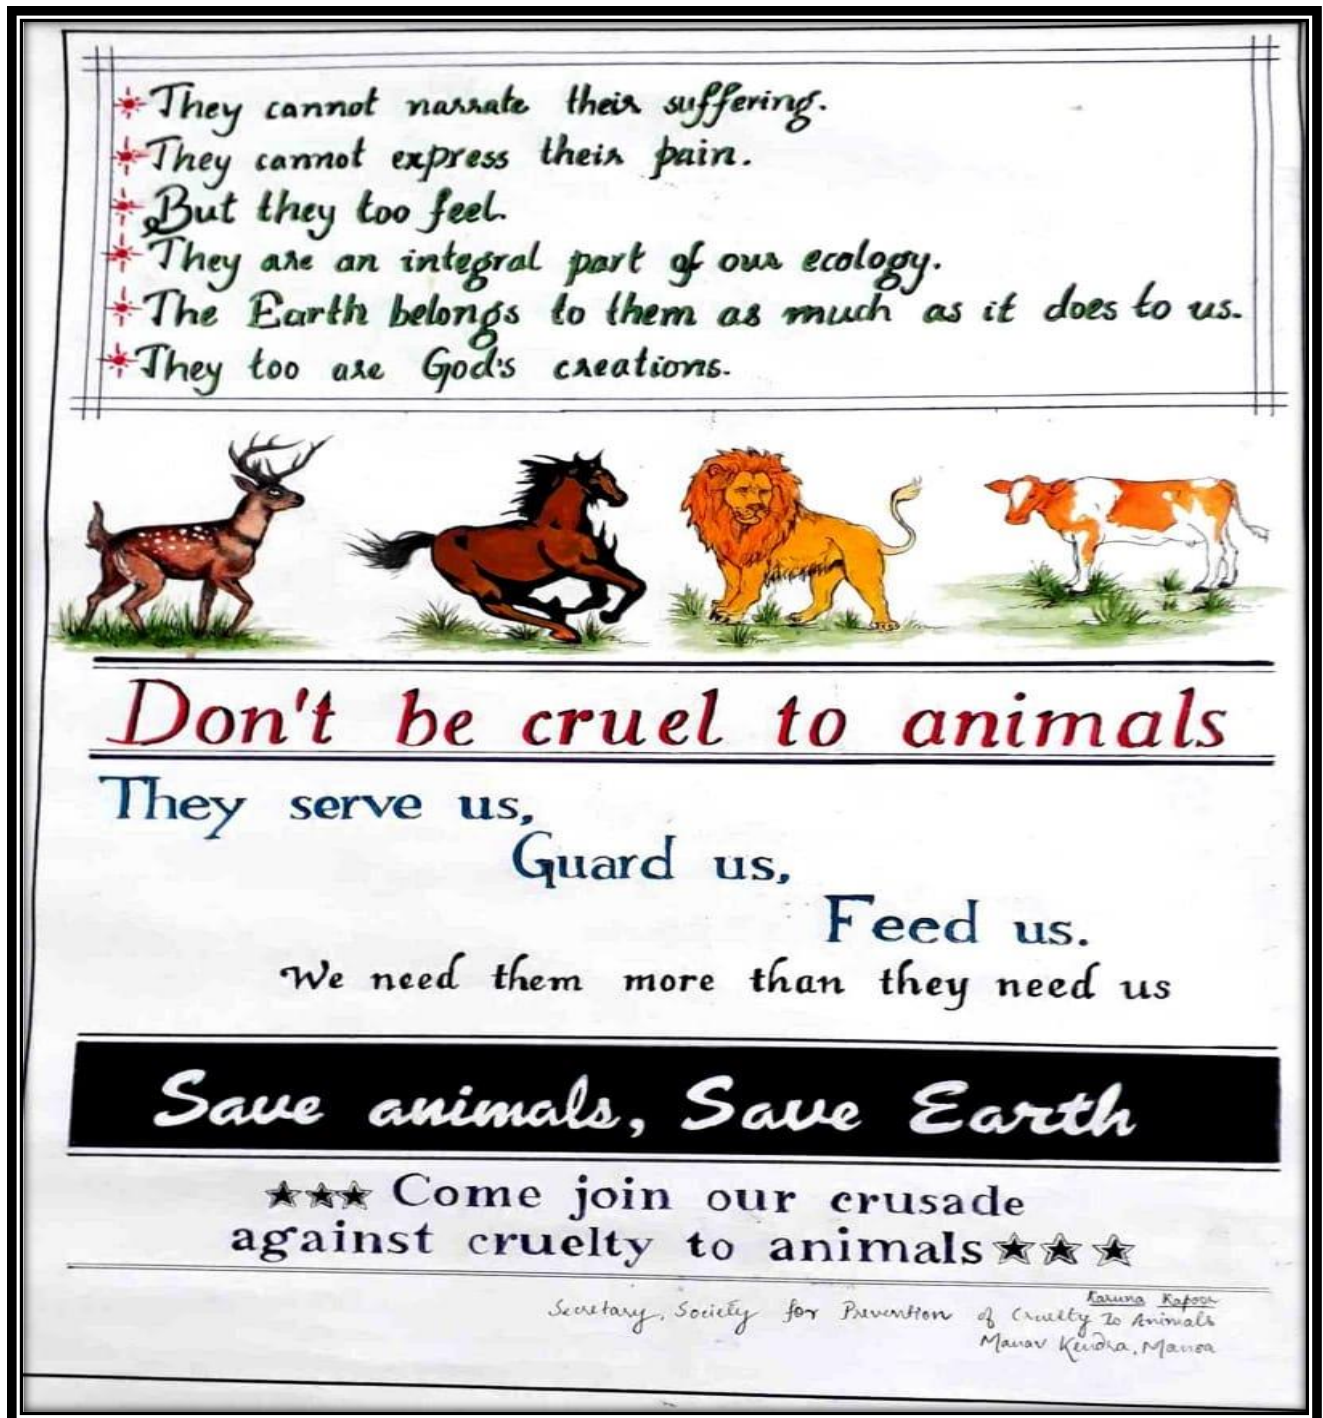 They cannot narrate their suffering.
They cannot express their pain.
But they too feel.
They are an integral part of our ecology.
The Earth belongs to them as much as it does to us.
They too are God's creations.
Don't be cruel to animals
They serve us,
Guard us,
Feed us.
We need them more than they need us
Save animals, Save Earth
Come join our crusade
against cruelty to animals
Karuna Kapoor
Secretary, Society for Prevention of Cruelty to Animals
Manav Kendra, Mansa